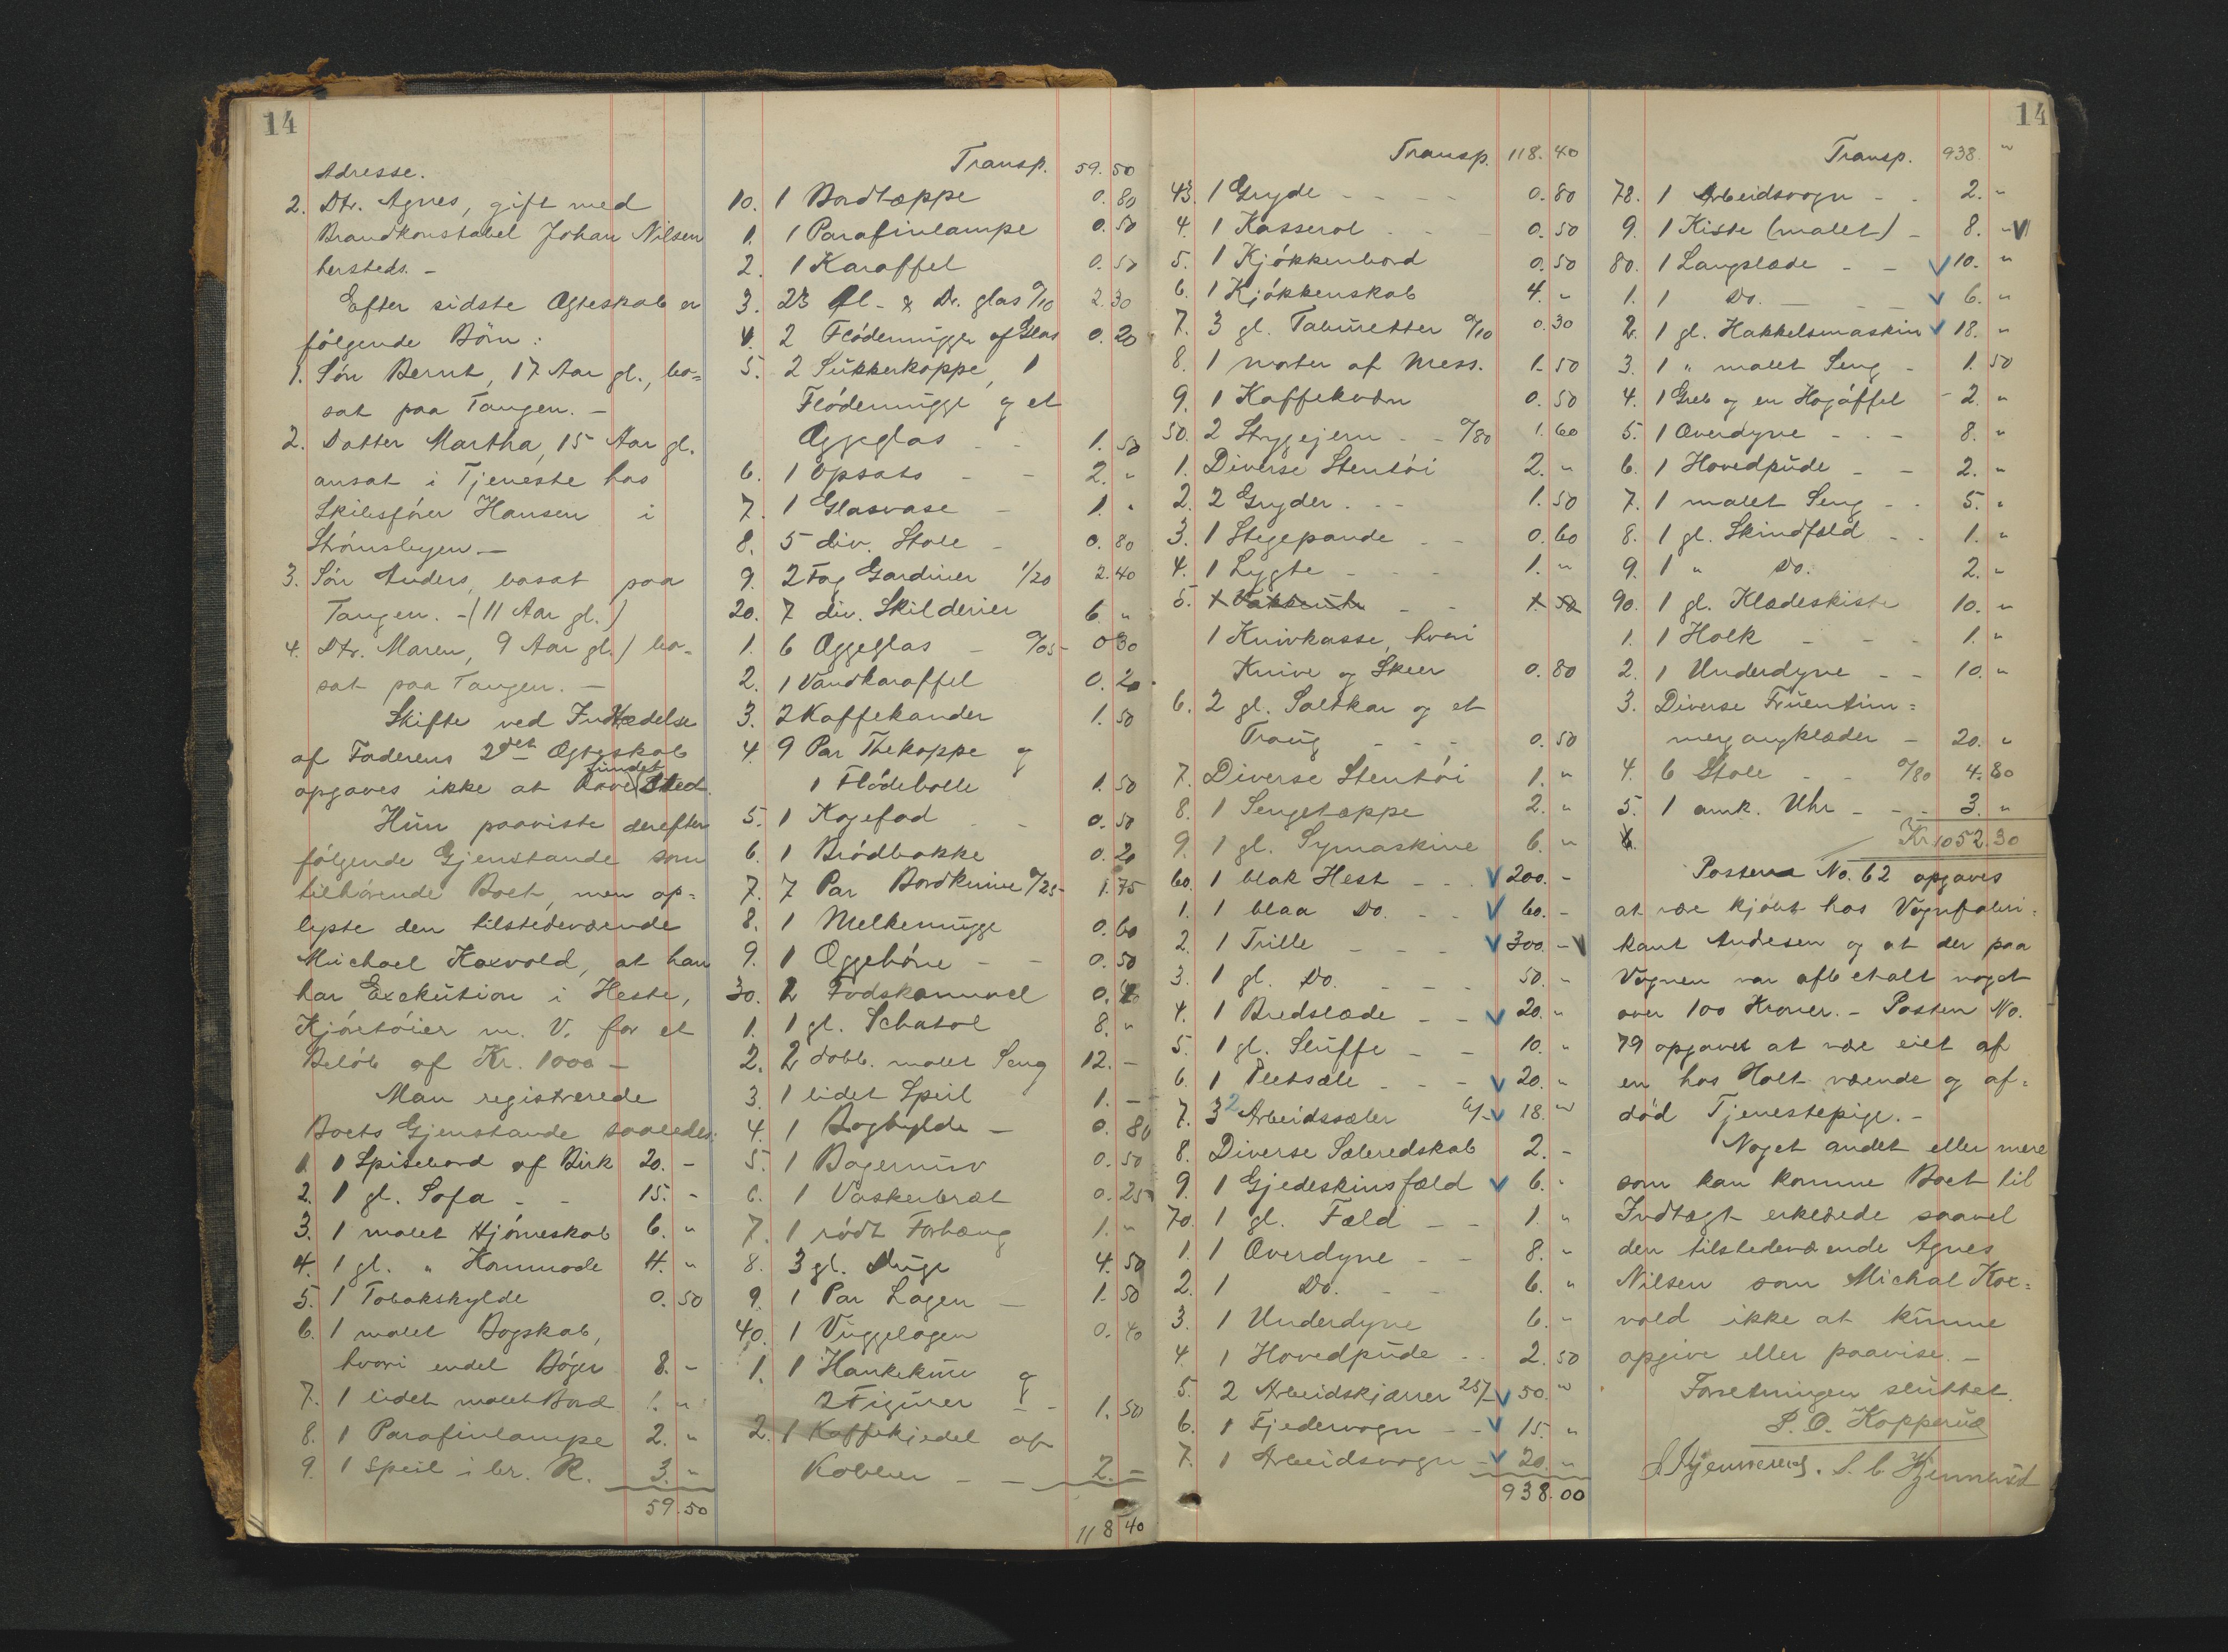 14
Adresse.
2. Dtr. Agnes, gift med
Brandkonstabel Johan Nilsen
hersteds. -
Efter sidste Ægteskab er
følgende Börn:
1. Sön Bernt, 17 Aar gl., bo=
sat paa Tangen. -
2. Datter Martha, 15 Aar gl.
ansat i Tjeneste hos
Skibsfører Hansen i
Strömsbyen. -
3. Sön Anders, bosat paa
Tangen. - (11 Aar gl.)
4. Dtr. Maren, 9 Aar gl.) bo=
sat paa Tangen. -
Skifte ved Indtrædelse
af Faderens 2det Ægteskab
opgaves ikke at have fundet Sted.
Hun paaviste derefter
følgende Gjenstande som
tilhörende Boet, men op=
lyste den tilstedeværende
Michael Koxvold, at han
har Exekution i Heste,
Kjöretöier m. V. for et
Belöb af Kr. 1000 -
Man registrerede
Boets Gjenstande saaledes:
1. 1 Spisebord af Birk 20. -
2. 1 gl. Sofa - - 15. -
3. 1 malet Hjörneskab 6. "
4. 1 gl. " Kommode 4. "
5. 1 Tobakshylde 0. 50
6. 1 malet Bogskab,
hvori endel Böger 8. -
7. 1 lidet malet Bord 1. "
8. 1 Parafinlampe 2. "
9. 1 Speil i br. R. 3. "
59. 50
Transp. 59. 50
10. 1 Bordtæppe 0. 80
1. 1 Parafinlampe 0. 50
2. 1 Karaffel 0. 50
3. 23 Øl- & Dr. glas 0/10 2. 30
4. 2 Flödemugger af Glas 0. 20
5. 2 Sukkerkoppe, 1
Flödemugge og et
Æggeglas - - 1. 50
6. 1 Opsats - - 2. "
7. 1 Glasvase - 1. "
8. 5 div. Stole - 0. 80
9. 2 Fag Gardiner 1/20 2. 40
20. 7 div. Skilderier 6. "
1. 6 Æggeglas - 0/05 - 0 30
2. 1 Vandkaraffel 0. 20
3. 2 Kaffekander 1. 50
4. 9 Par Thekoppe og
1 Flödebolle 1. 50
5. 1 Kagefad - - 0. 50
6. 1 Brödbakke 0. 20
7. 7 Par Bordknive 0/25 - 1. 75
8. 1 Melkemugge 0. 60
9. 1 Æggehöne - - 0. 50
30. 2 Fodskammel 0. 40
1. 1 gl. Schatol 8. "
2. 2 dobb. malet Seng 12. -
3. 1 lidet Speil 1. -
4. 1 Boghylde - 0. 80
5. 1 0. 50
6. 1 Vaskebræt 0. 25
7. 1 rödt Forhæng 1. "
8. 3 gl. Duge 4. 50
9. 1 Par Lagen - 1. 50
40. 1 Vuggelagen 0. 40
1. 1 og
2 Figurer - 1. 50
2. 1 Kaffekjedel af
Kobber - - 2. -
118 40
Transp. 118. 40
43. 1 Gryde - - - - 0. 80
4. 1 Kasserol - - - 0. 50
5. 1 Kjøkkenbord 0. 50
6. 1 Kjøkkenskab 4. "
7. 3 gl. Tabouretter 0/10 0. 30
8. 1 morter af Mess. 1. 50
9. 1 Kaffekværn 0. 50
50. 2 Strygejern - - 0/80 1. 60
1. Diverse Stentöi 2. "
2. 2 Gryder - - - 1. 50
3. 1 Stegepande - - 0. 60
4. 1 Lygte - - - 1. "
5. 1 - - 1. 50
1 Knivkasse, hvori
Knive og Skeer 0. 80
6. 2 gl. Saltkar og et
Traug - - - 0. 50
7. Diverse Stentöi 1. "
8. 1 Sengetæppe 2. "
9. 1 gl. Symaskine 6. "
60. 1 blak Hest - - - 200. -
1. 1 blaa Do. - - 60. -
2. 1 Trille - - - 300. -
3. 1 gl. Do. - - - 50. -
4. 1 Bredslæde - - 20. "
5. 1 gl. Sluffe - - 10. "
6. 1 Pletsæle - - - 20. "
7. 3 2 Arbeidssæler 6/- 18. "
8. Diverse Sæleredskab 2. -
9. 1 Gjedeskinsfæld 6. "
70. 1 gl. Fæld - - 1. "
1. 1 Overdyne - - 8. "
2. 1 Do. - - 6. "
3. 1 Underdyne 6. "
4. 1 Hovedpude - - 2. 50
5. 2 Arbeidskjærrer 25/- 50. "
6. 1 Fjedervogn - - 15. "
7. 1 Arbeidsvogn - 20. "
938. 00
14
Transp. 938. "
78. 1 Arbeidsvogn - - 2. "
9. 1 Kiste (malet) - 8. "
80. 1 Langslæde - - 10. "
1. 1 Do. - - - 6. "
2. 1 gl. Hakkelsmaskin 18. "
3. 1 " malet Seng - 1. 50
4. 1 Greb og en Högaffel - 2. "
5. 1 Overdyne - - - 8. "
6. 1 Hovedpude - - 2. "
7. 1 malet Seng - - 5. "
8. 1 gl. Skindfæld - - 1. "
9. 1 " Do. 2. "
90. 1 gl. Klædeskiste 10. "
1. 1 Holk - - - 1. "
2. 1 Underdyne - - 10. "
3. Diverse Fruentim=
mergangklæder - 20. "
4. 6 Stole - - 0/80 4. 80
5. 1 amk. Uhr - - - 3. "
6.
Kr. 1052. 30
Posten No. 62 opgaves
at være kjöbt hos Vognfabri=
kant Andresen og at der paa
Vognen var afbetalt noget
over 100 Kroner. - Posten No.
79 opgaves at være eiet af
en hos Holt værende og af=
död Tjenestepige. -
Noget andet eller mere
som kan komme Boet til
Indtægt erklærede saavel
den tilstedeværende Agnes
Nilsen som Michal Kox=
vold ikke at kunne
opgive eller paavise. -
Forretningen sluttet.
P. O. Kopperud